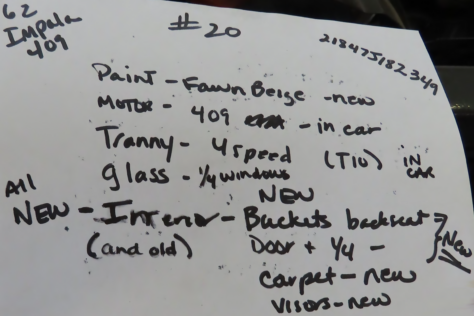 62
Impala
409
#20
21847J182349
Paint - Fawn Beige - new
Motor - 409 - in car
Tranny - 4 speed (T10) IN CAR
glass - 1/4 windows
NEW
All
NEW - Interior - Buckets backseat
(and old) Door + 1/4 - New
carpet - new
visors - new